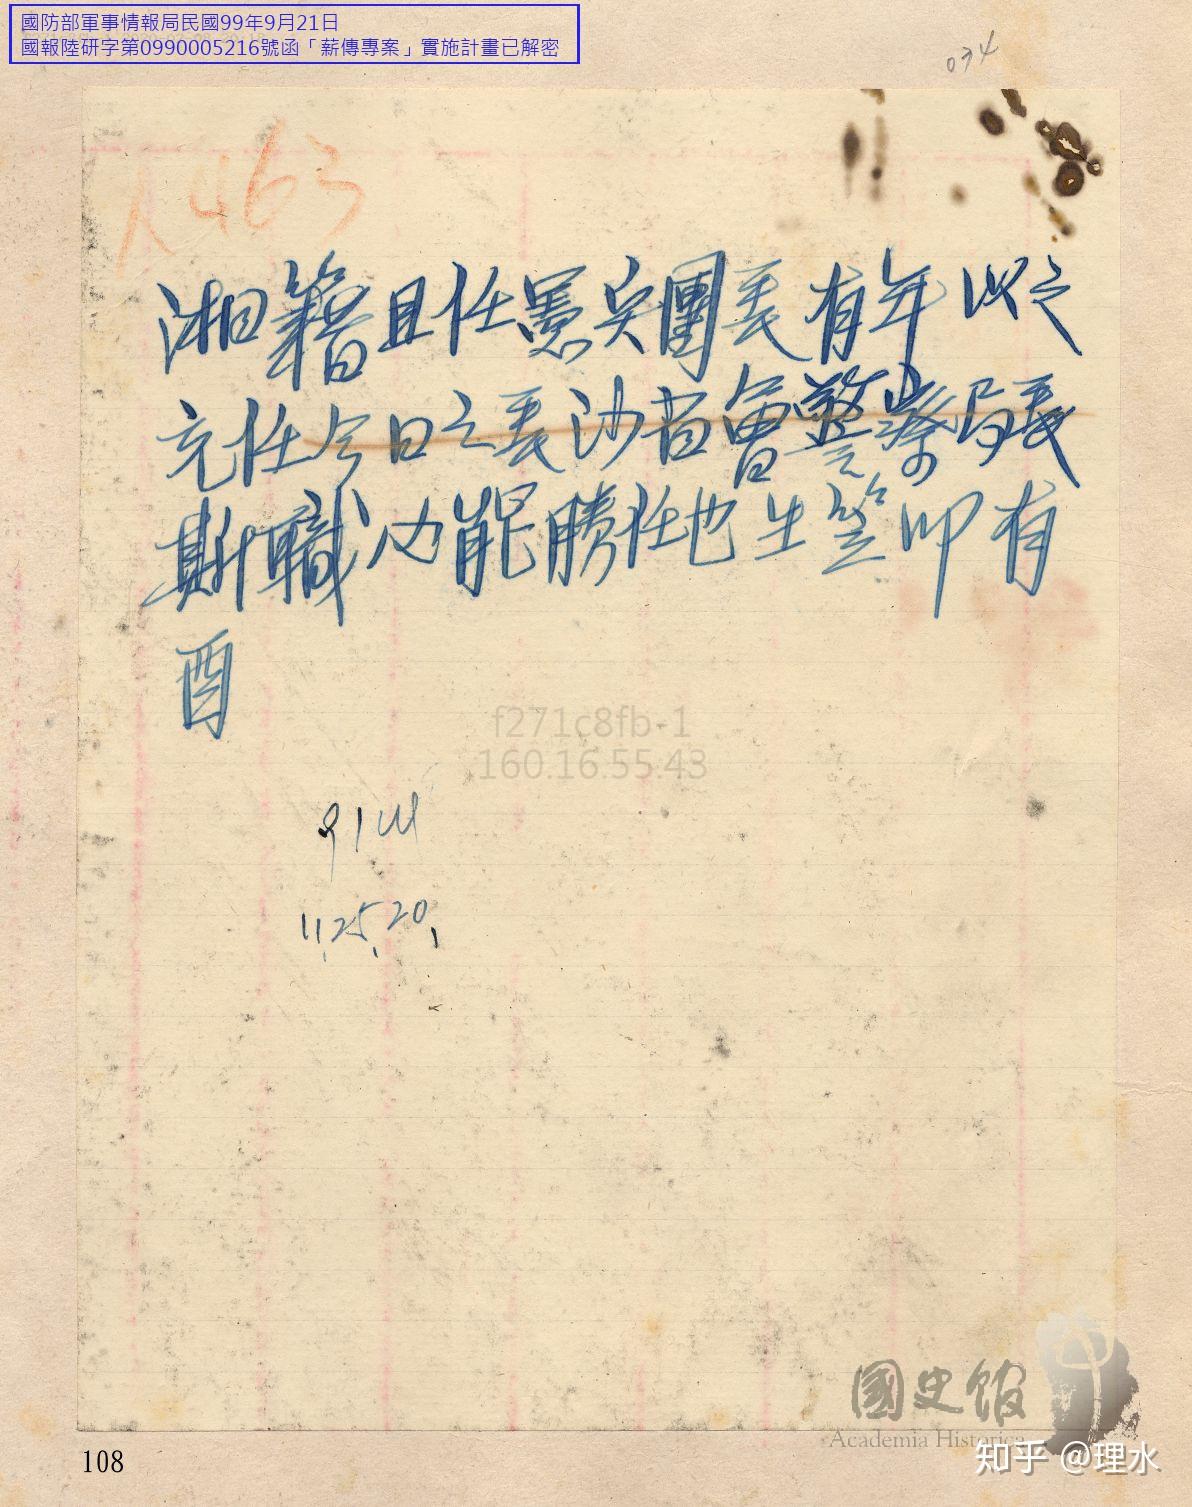 國防部軍事情報局民國99年9月21日
國報陸研字第0990005216號函「薪傳專案」實施計畫已解密
034
人463
湘籍且任憲兵團長有年以之
充任今日之長沙省會警察局長
斯職必能勝任也生笠叩有
酉
f271c8fb-1
160.16.55.43
11,25,20,
國史館
Academia Historica
108
知乎 @理水